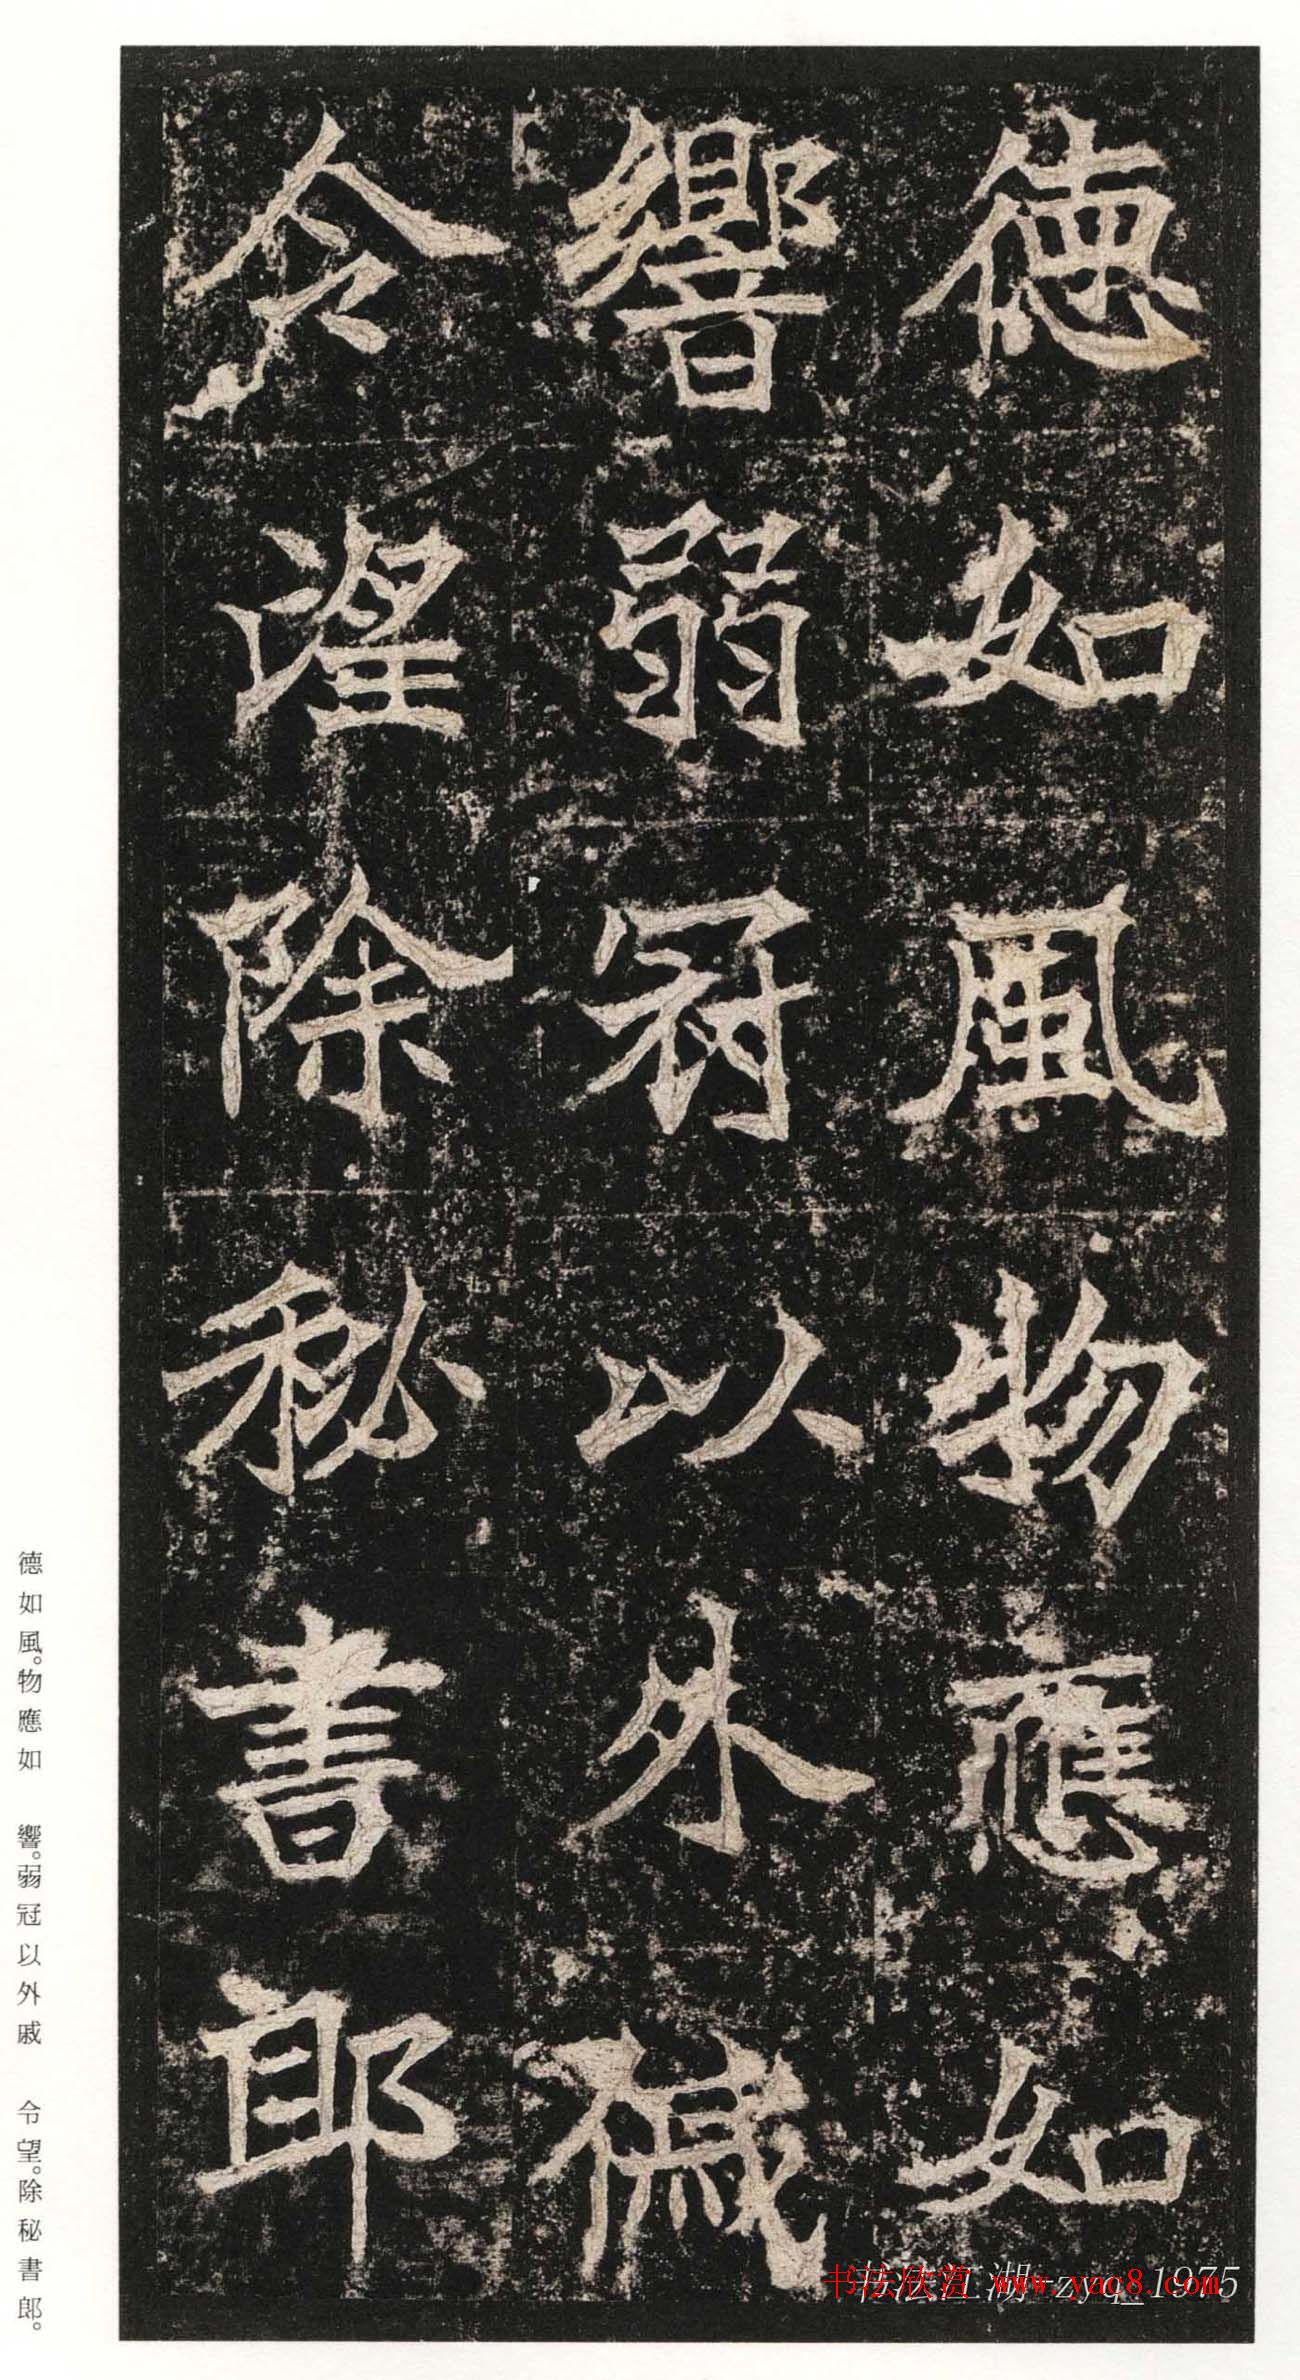 德如風物應如
響弱冠以外戚
令望除秘書郎
德如風。物應如　響。弱冠以外戚　令望。除秘書郎。
书法欣赏 www.yac8.com
书法江湖 zyq_1975